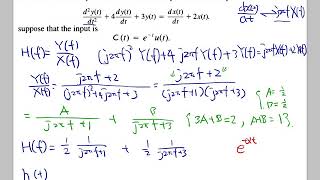 d²y(t)/dt² + 4 dy(t)/dt + 3y(t) = dx(t)/dt + 2x(t).
suppose that the input is
C(t) = e⁻ᵗu(t).
H(f) = Y(f)/X(f) (j2πf)² Y(f) + 4 j2πf Y(f) + 3Y(f) = j2πf X(f) + 2X(f)
Y(f)/X(f) = (j2πf + 2)/((j2πf)² + 4 j2πf + 3) = (j2πf + 2)/((j2πf + 1)(j2πf + 3)) { A = 1/2 B = 1/2
= A/(j2πf + 1) + B/(j2πf + 3) {3A+B = 2, A+B = 1}
H(f) = 1/2 1/(j2πf+1) + 1/2 1/(j2πf+3)
h(t)